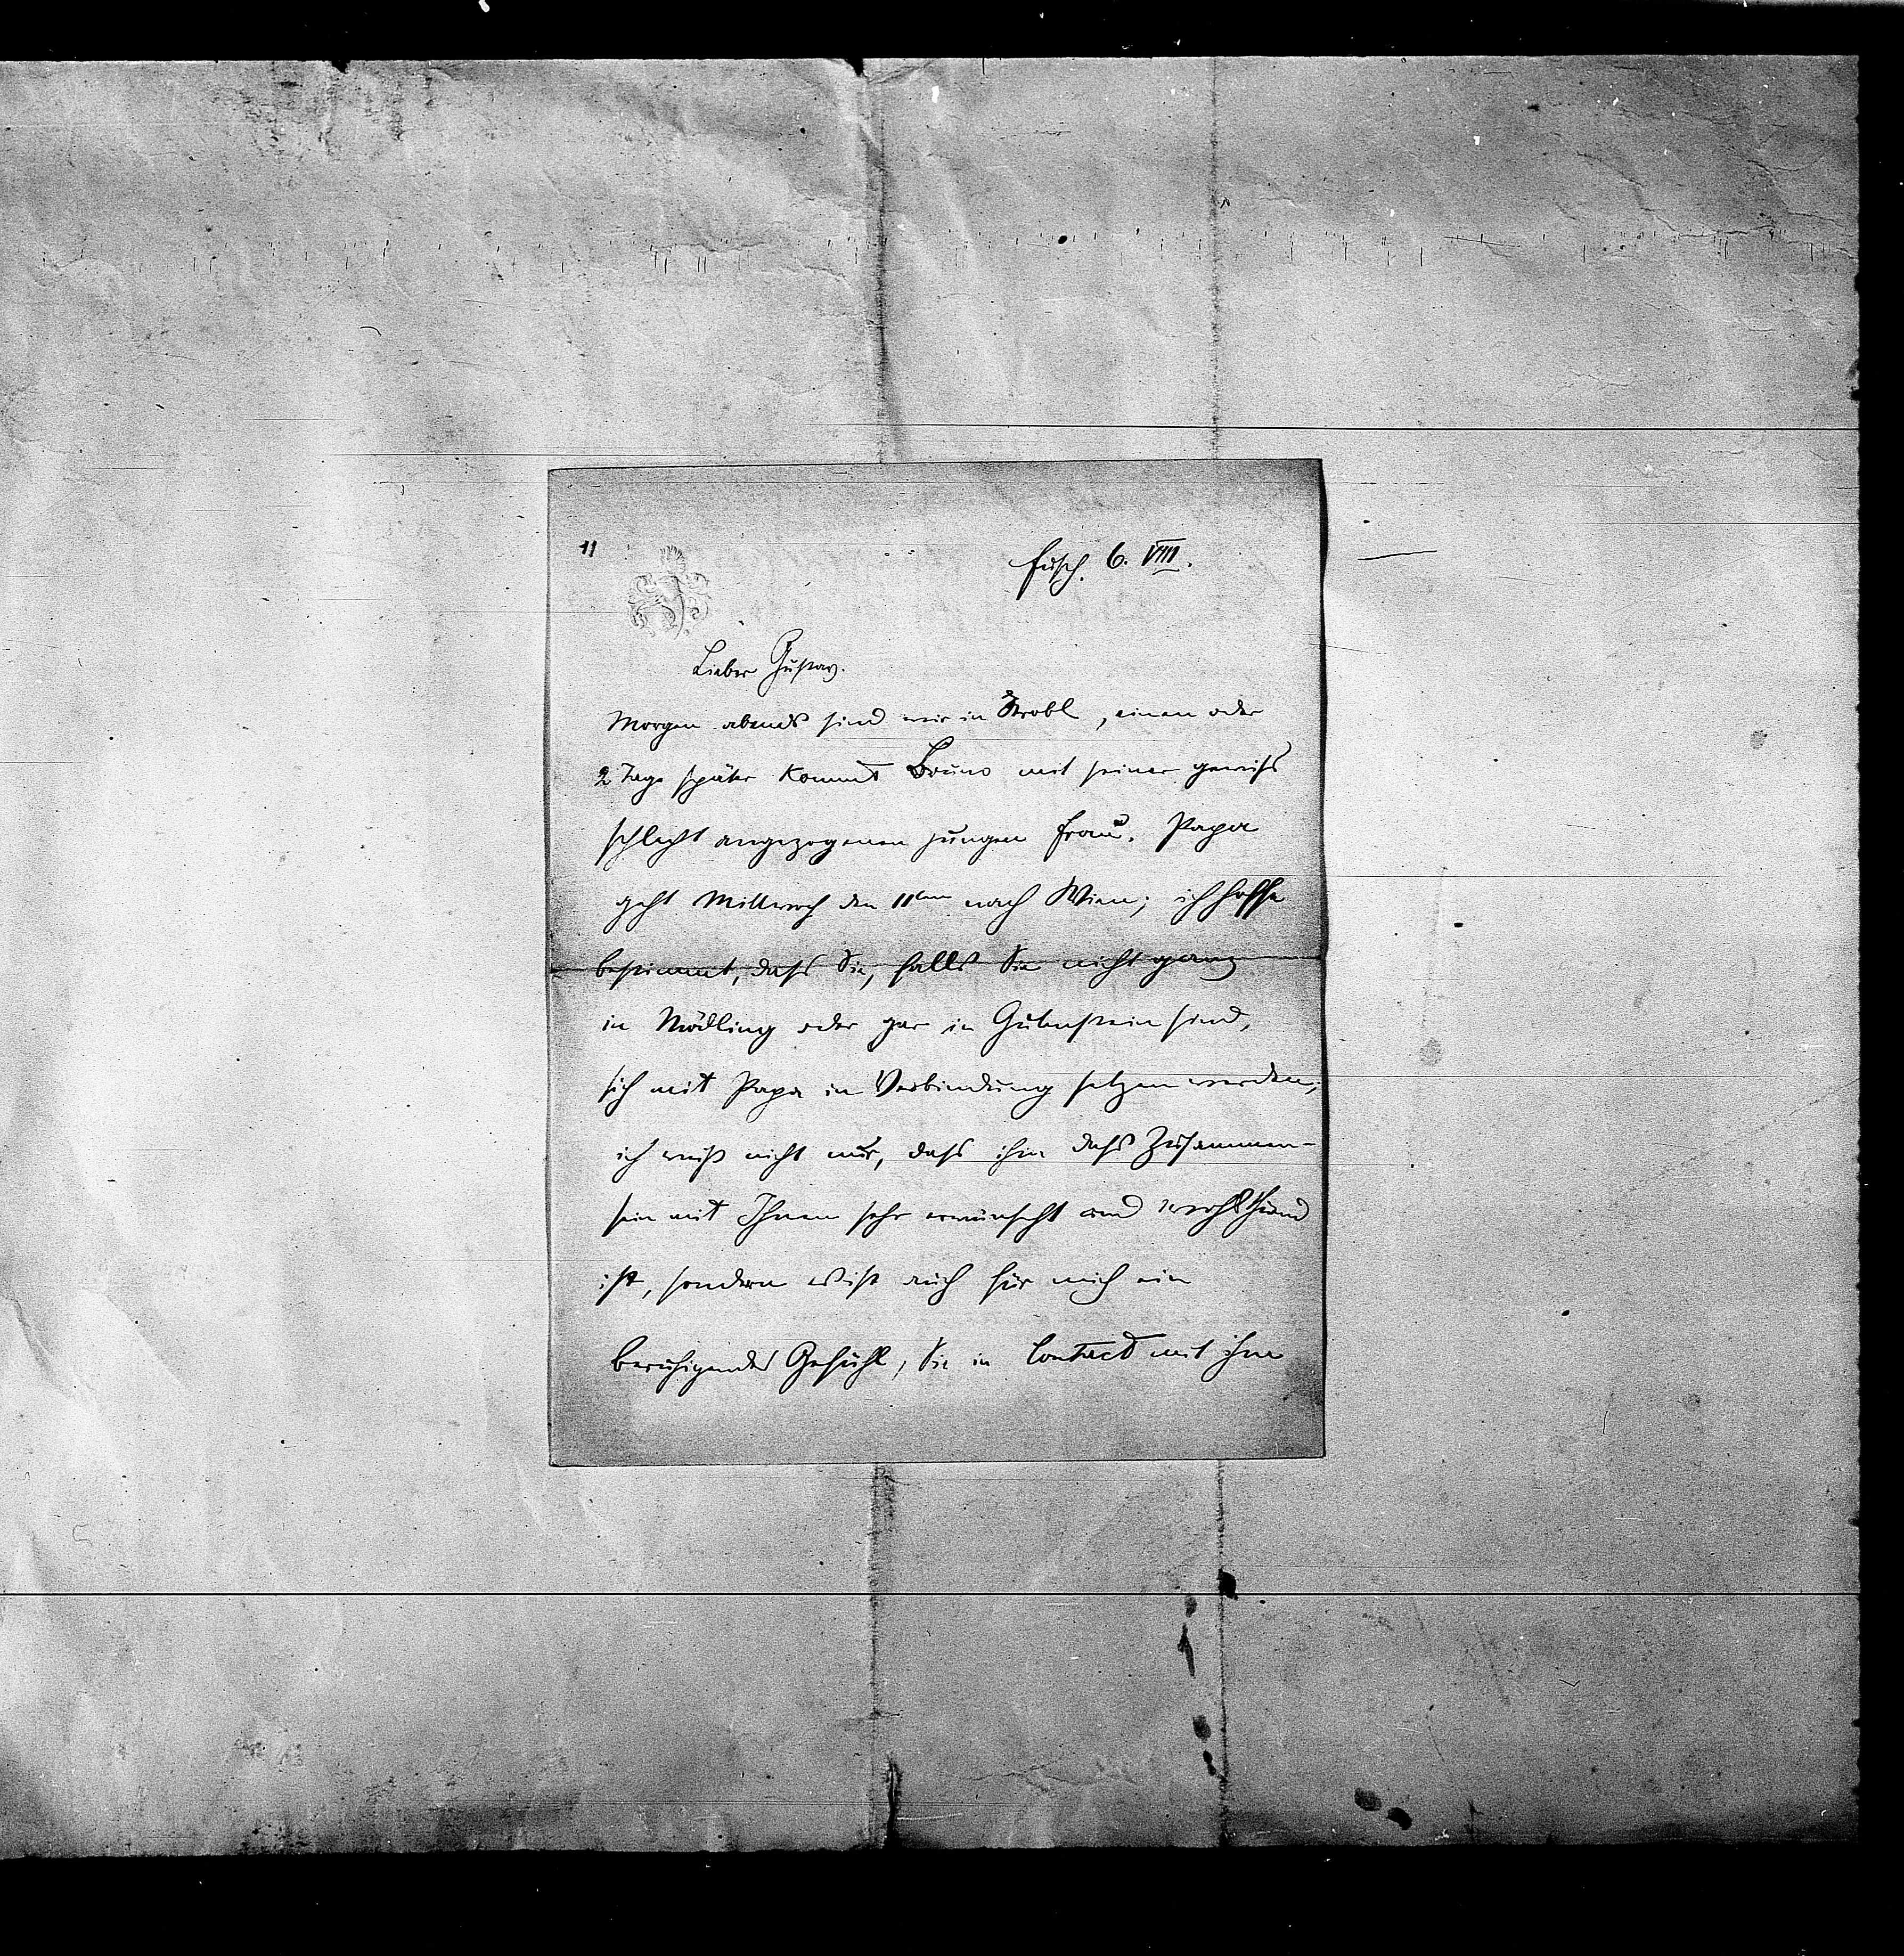 11
Fusch. 6. VIII.
Lieber Gustav.
Morgen abends sind wir in Strobl, einen oder
2 Tage später kommt Bruno mit seiner gewiss
schlecht angezogenen jungen Frau. Papa
geht Mittwoch den 11ten nach Wien; ich hoffe
bestimmt, dass Sie, falls Sie nicht ganz
in Mödling oder gar in Gutenstein sind,
sich mit Papa in Verbindung setzen werden;
ich weiß nicht nur, dass ihm dass Zusammen-
sein mit Ihnen sehr erwünscht und wohlthuend
ist, sondern es ist auch für mich ein
beruhigendes Gefühl, Sie in Contact mit ihm